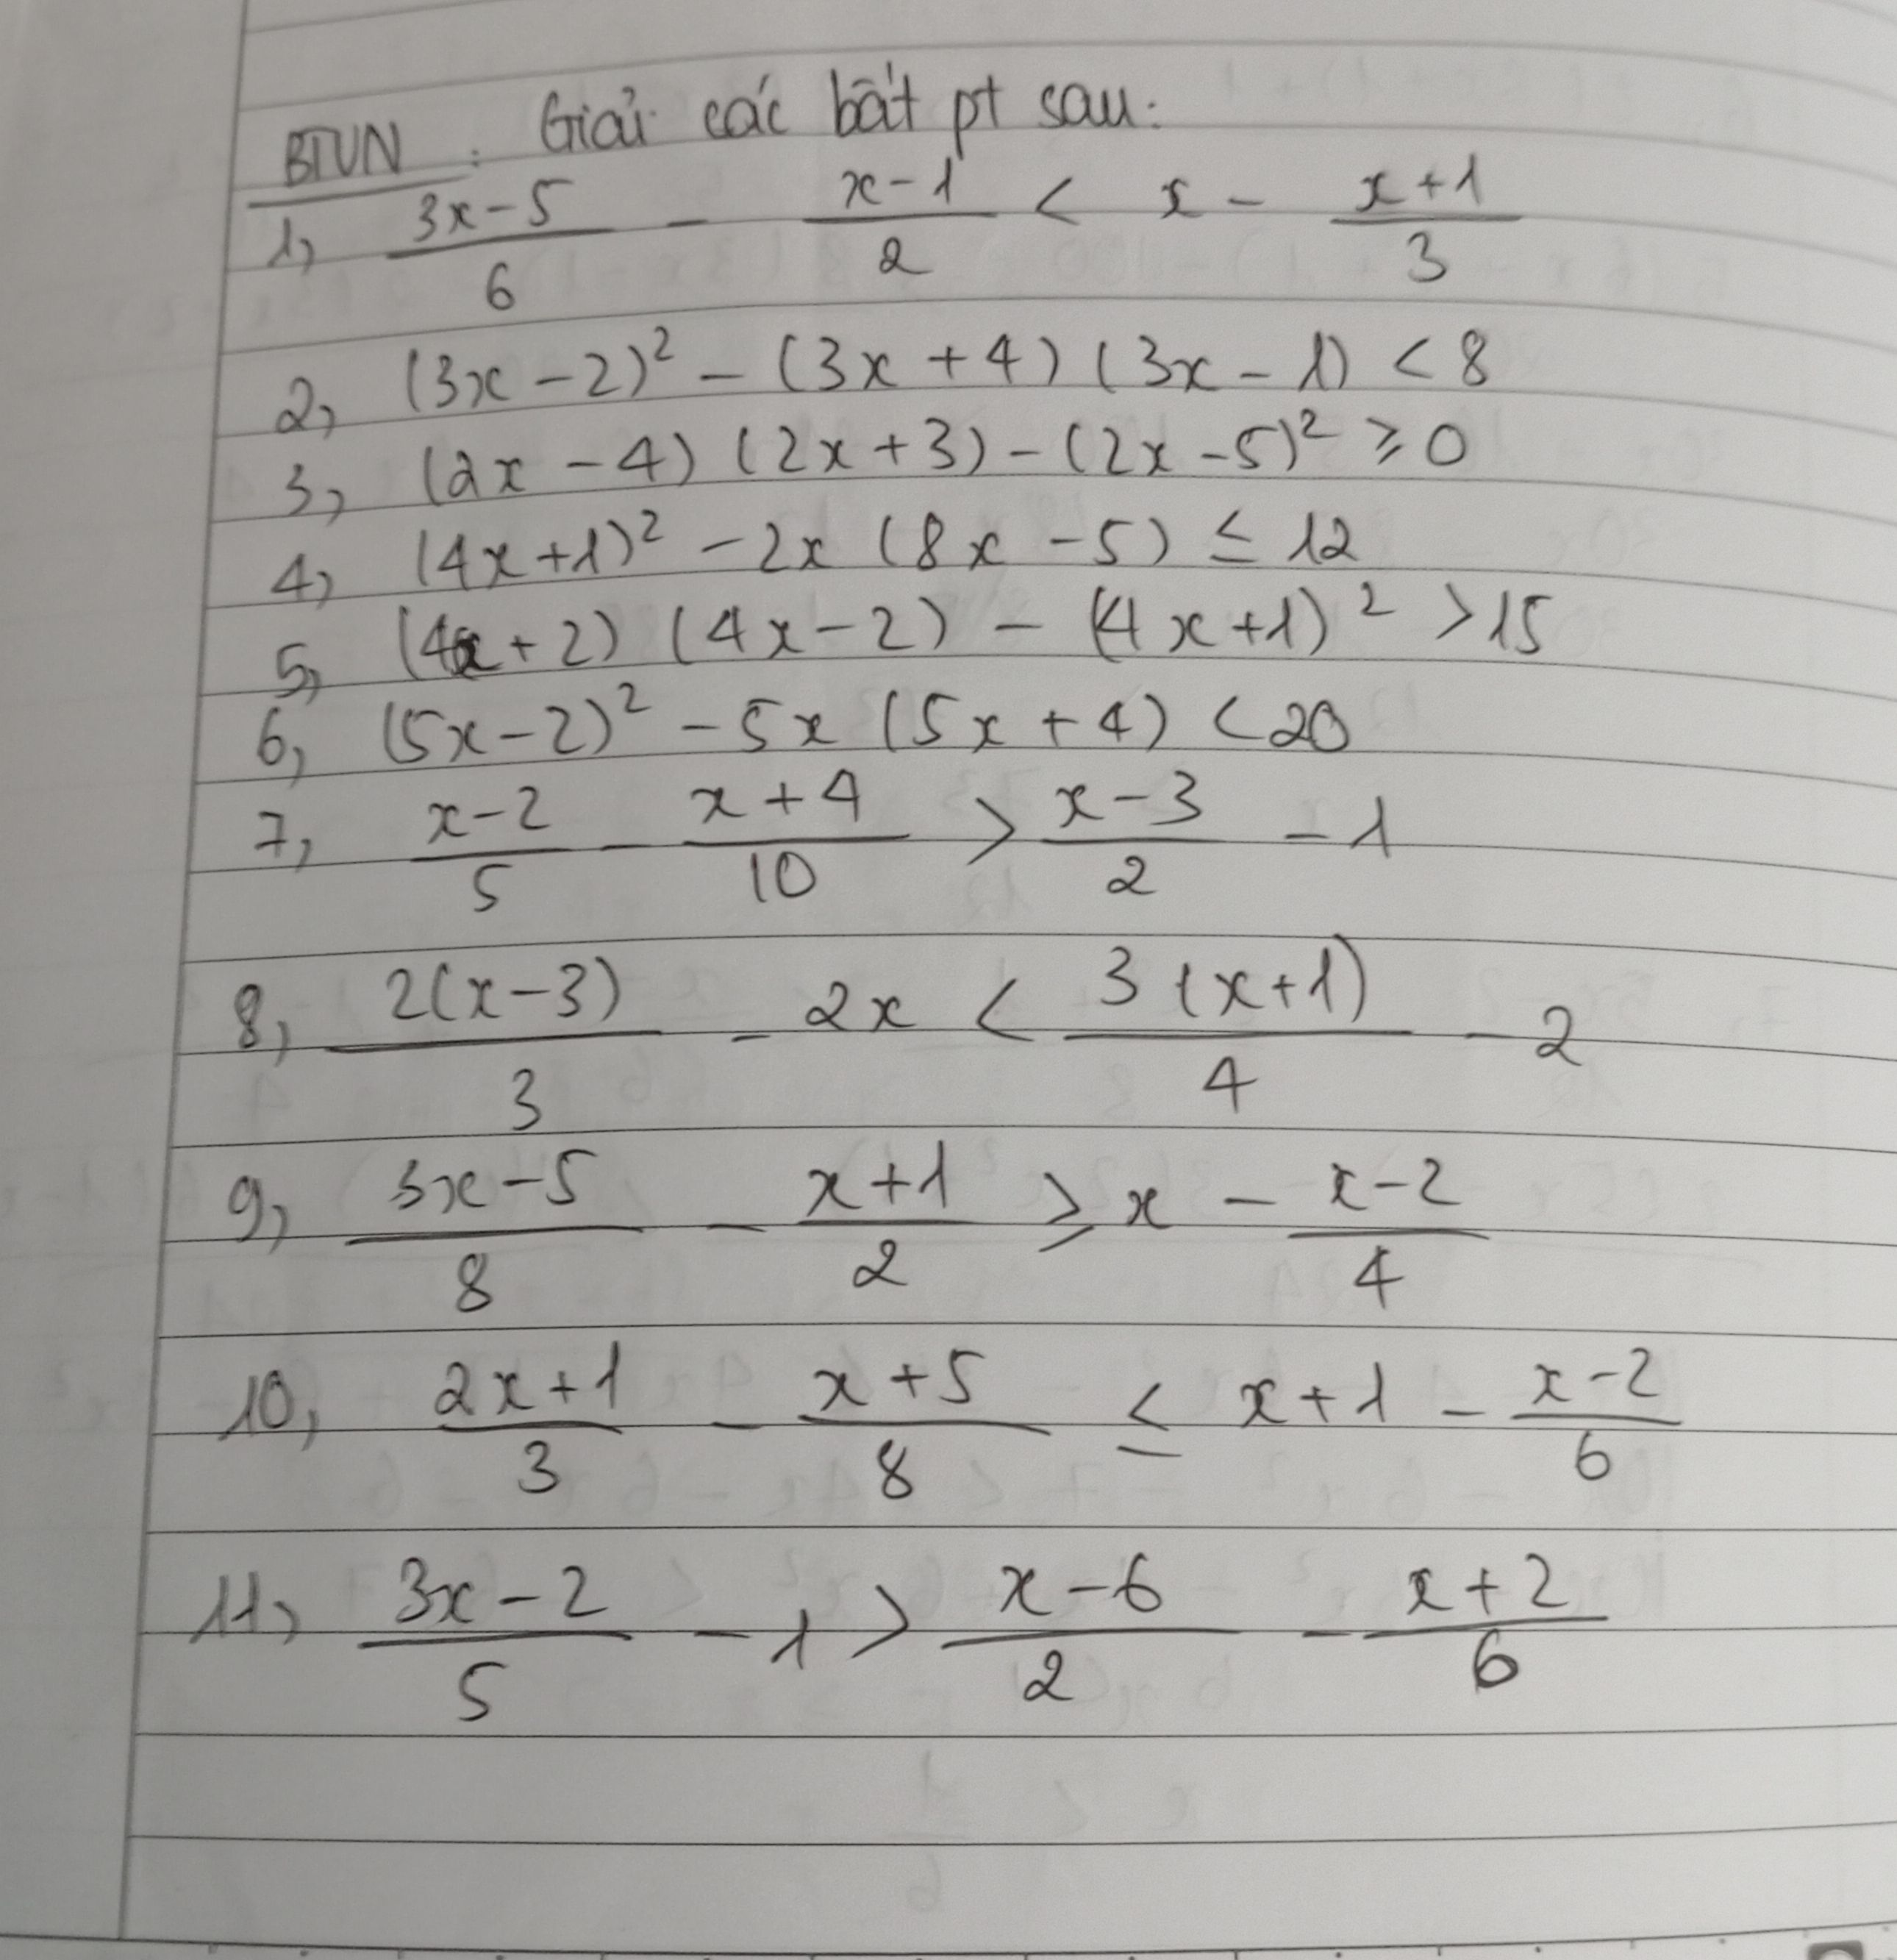 BTVN : Giải các bất pt sau:
1, \frac{3x-5}{6} - \frac{x-1}{2} < x - \frac{x+1}{3}
2, (3x-2)² - (3x+4)(3x-1) < 8
3, (2x-4)(2x+3) - (2x-5)² ≥ 0
4, (4x+1)² - 2x(8x-5) ≤ 12
5, (4x+2)(4x-2) - (4x+1)² > 15
6, (5x-2)² - 5x(5x+4) < 20
7, \frac{x-2}{5} - \frac{x+4}{10} > \frac{x-3}{2} - 1
8, \frac{2(x-3)}{3} - 2x < \frac{3(x+1)}{4} - 2
9, \frac{3x-5}{8} - \frac{x+1}{2} ≥ x - \frac{x-2}{4}
10, \frac{2x+1}{3} - \frac{x+5}{8} ≤ x+1 - \frac{x-2}{6}
11, \frac{3x-2}{5} - 1 > \frac{x-6}{2} - \frac{x+2}{6}